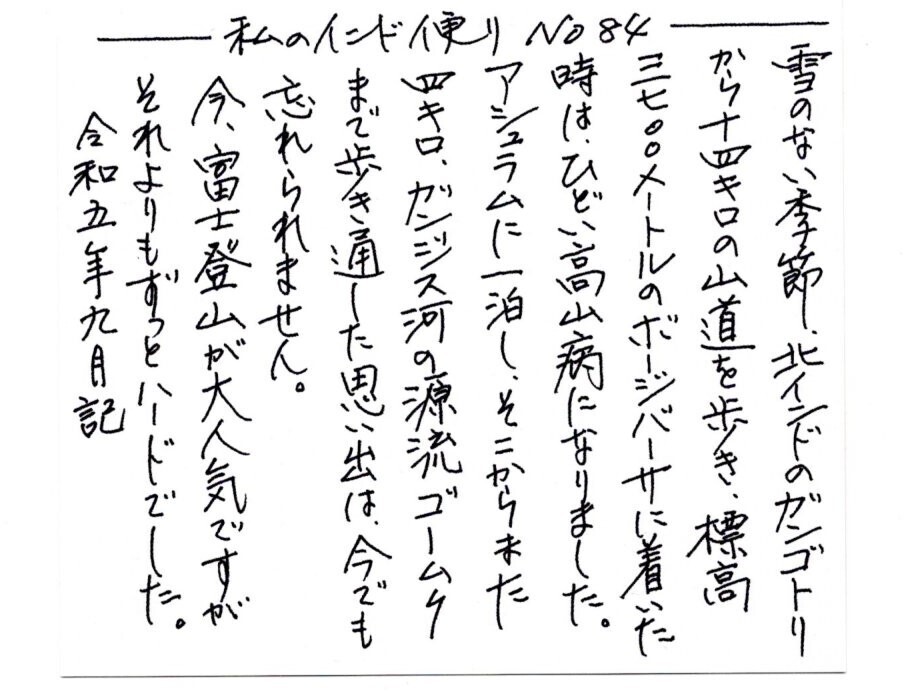 私のインド便り No 84
雪のない季節し、北インドのガンゴトリ
から十四キロの山道を歩き、標高
三七〇〇メートルのボージバーサに着いた
時は、ひどい高山病になりました。
アシュラムに一泊し、そこからまた
四キロ、ガンジス河の源流ゴームク
まで歩き通した思い出は、今でも
忘れられません。
今、富士登山が大人気ですが
それよりもずっとハードでした。
令和五年九月記